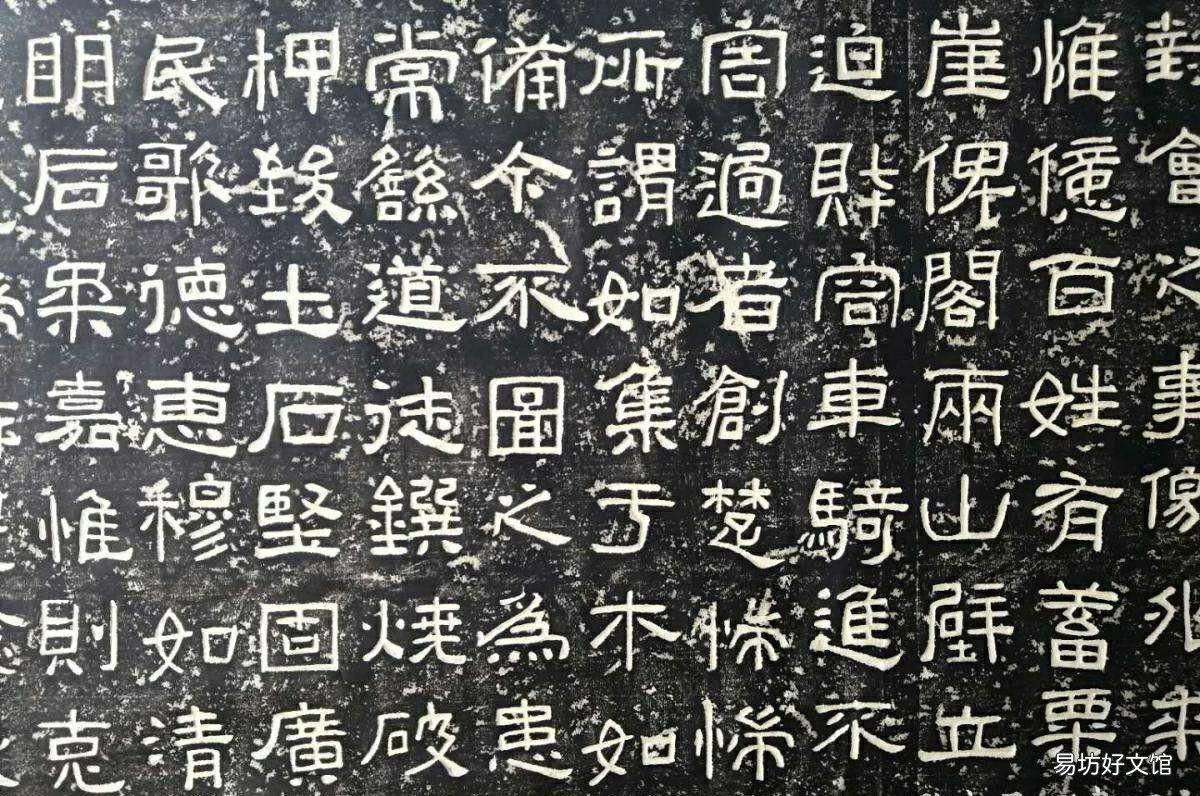 對會之事徼外來
惟億百姓有蓄粟
崖俾閣兩山壁立
迫財容車騎進不
害過者創楚惴惴
所謂如集于木如
備今不圖之為患
常繇道徒鐉燒破
柙致土石堅固廣
民歌德惠穆如清
明后柔嘉惟則克
易坊好文馆